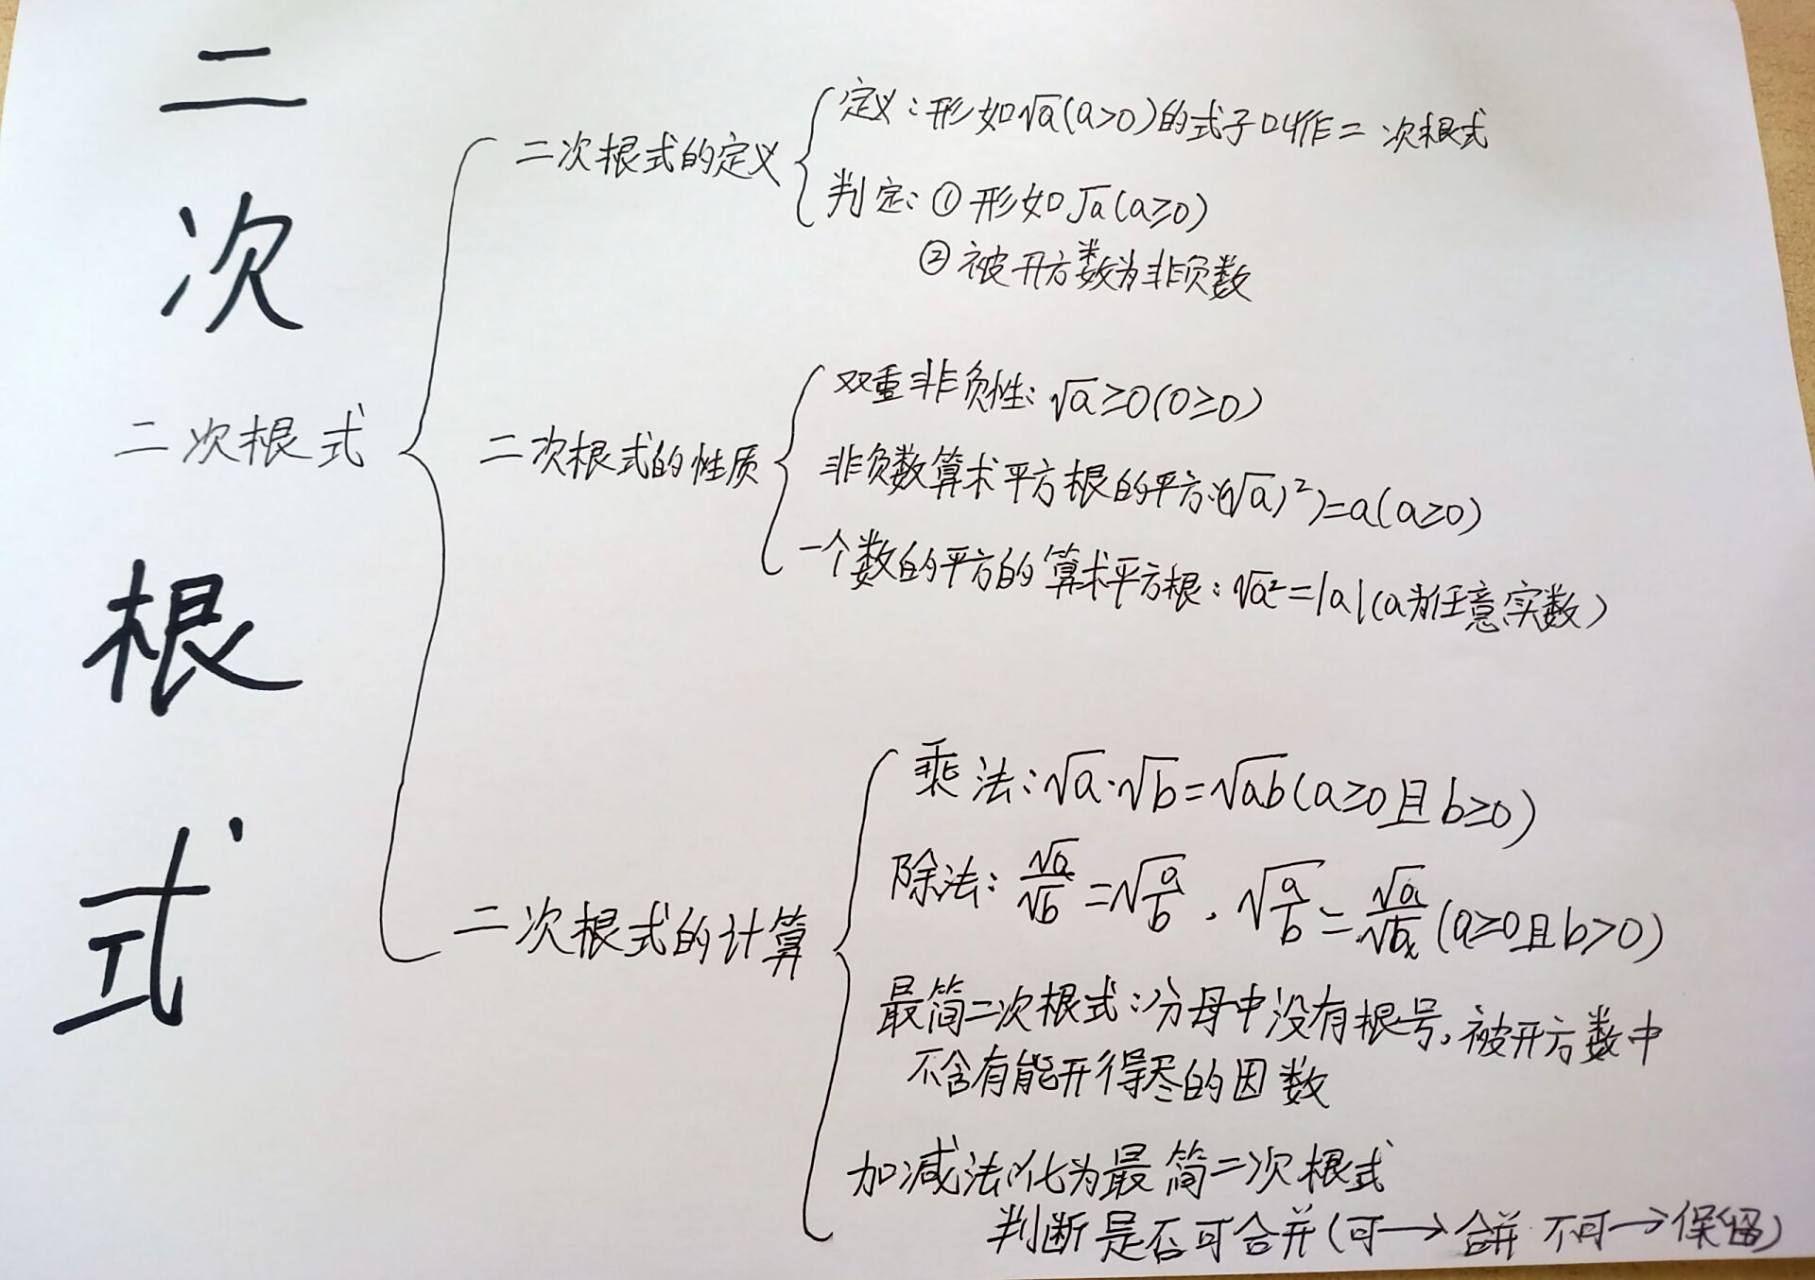 二次根式
二次根式
二次根式的定义
定义:形如√a(a>0)的式子叫作二次根式
判定:①形如√a(a≥0)
②被开方数为非负数
二次根式的性质
双重非负性:√a≥0(0≥0)
非负数算术平方根的平方:(√a)²)=a(a≥0)
一个数的平方的算术平方根:√a²=|a|(a为任意实数)
二次根式的计算
乘法:√a·√b=√ab(a≥0且b≥0)
除法:√a/√b=√(a/b),√(a/b)=√a/√b(a≥0且b>0)
最简二次根式:分母中没有根号,被开方数中
不含有能开得尽的因数
加减法:化为最简二次根式
判断是否可合并(可→合并 不可→保留)